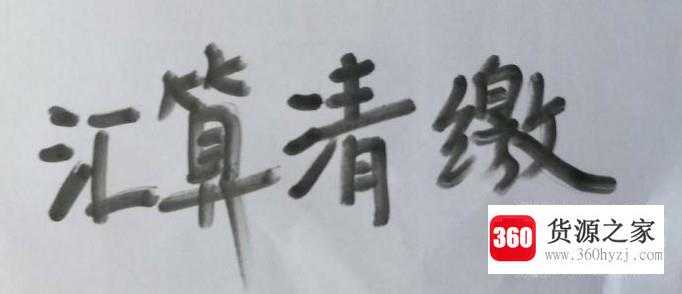 汇算清缴
360 货源之家
www.360hyzj.com